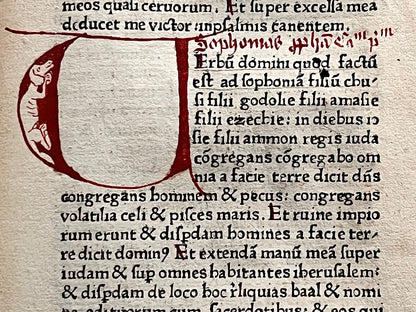 meos quasi ceruorum. Et super excelsa mea
deducet me victor in psalmis canentem.
Sophonias ꝓph̃a Ca^m p^m
Erbũ domini quod factũ
est ad sophoniã filiũ chu-
si filii godolie filii amasie
filii ezechie: in diebus io
sie filii ammon regis iuda
cõgregans cõgregabo om
nia a facie terre dicit dñs
congregans hominem & pecus: congregans
volatilia celi & pisces maris. Et ruine impio
rum erunt & disꝑdam homines a facie ter-
re dicit dominꝰ Et extendã manũ meã super
iudam & suꝑ omnes habitantes iherusalem:
& disꝑdam de loco hoc rl̃iquias baal & nomi
sacerdotibus: & eos qui